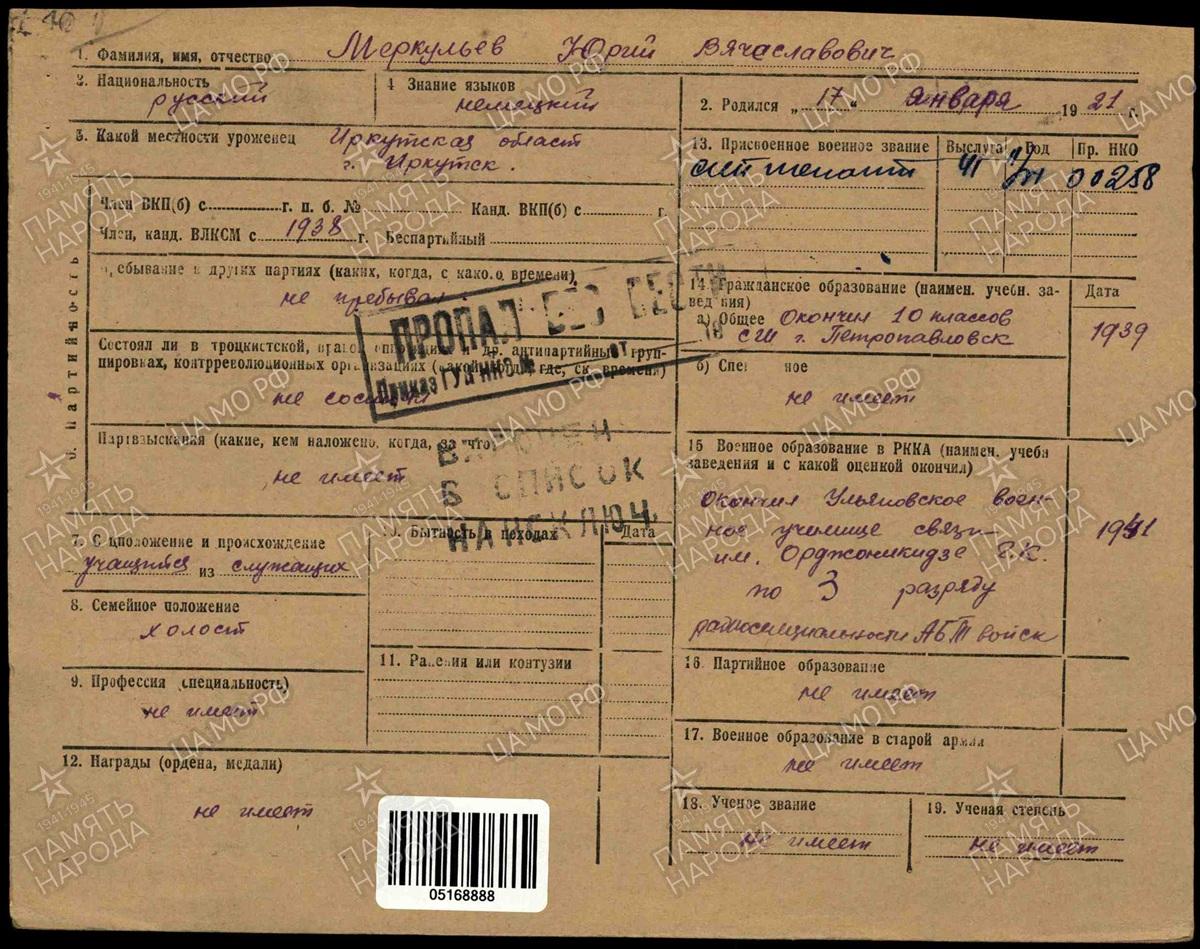 1. Фамилия, имя, отчество Меркульев Юрий Вячаславович
3. Национальность русский
4 Знание языков немецкий
2. Родился „17“ января 1921 г.
5. Какой местности уроженец Иркутская област
г. Иркутск.
13. Присвоенное военное звание Выслуга Год Пр. НКО
00258
6. Партийность
Член ВКП(б) с г. п. б. № Канд. ВКП(б) с г.
Член, канд. ВЛКСМ с 1938 г. Беспартийный
Пребывание в других партиях (каких, когда, с какого времени)
не пребывал
Состоял ли в троцкистской, правой, оппозиции и др. антипартийных груп-
пировках, контрреволюционных организациях (какой, когда, где, ск. времени)
не состоял
Партвзыскания (какие, кем наложено, когда, за что)
не имеет
ПРОПАЛ БЕЗ ВЕСТИ
Приказ ГУФ НКО № от 19
ВКЛЮЧЕН
В СПИСОК
НА ИСКЛЮЧ.
14. Гражданское образование (наимен. учебн. за-
ведения) Дата
а) Общее Окончил 10 классов
СШ г. Петропавловск 1939
б) Специальное
не имеет
15 Военное образование в РККА (наимен. учебн
заведения и с какой оценкой окончил)
Окончил Ульяновское воен-
ное училище связи 1941
им. Орджоникидзе Г.К.
по 3 разряду
радиоспециальности АБТ войск
7. Соцположение и происхождение
учащийся из служащих
8. Семейное положение
холост
9. Профессия (специальность)
не имеет
10. Бытность в походах Дата
11. Ранения или контузии
12. Награды (ордена, медали)
не имеет
16. Партийное образование
не имеет
17. Военное образование в старой армии
не имеет
18. Ученое звание
не имеет
19. Ученая степень
не имеет
05168888
ПАМЯТЬ НАРОДА
1941-1945
ЦА МО РФ